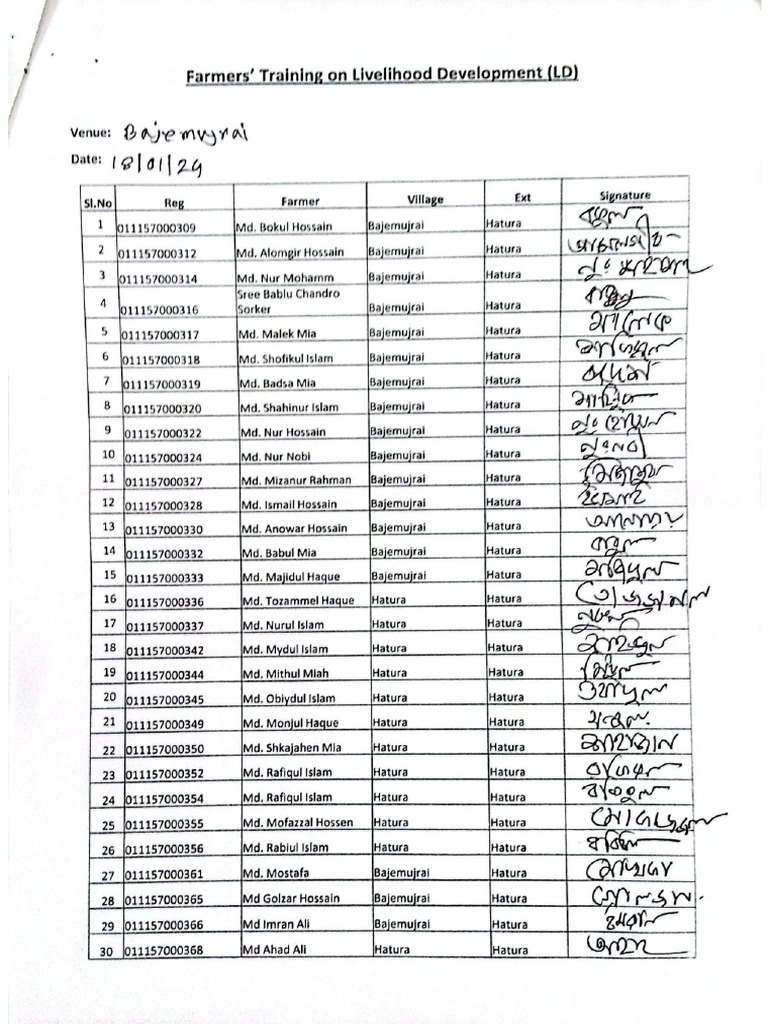 Farmers' Training on Livelihood Development (LD)
Venue: Bajemujrai
Date: 18/01/24
Sl.No Reg Farmer Village Ext Signature
1 011157000309 Md. Bokul Hossain Bajemujrai Hatura বকুল
2 011157000312 Md. Alomgir Hossain Bajemujrai Hatura
3 011157000314 Md. Nur Mohamm Bajemujrai Hatura
4 011157000316 Sree Bablu Chandro Sorker Bajemujrai Hatura
5 011157000317 Md. Malek Mia Bajemujrai Hatura মালেক
6 011157000318 Md. Shofikul Islam Bajemujrai Hatura
7 011157000319 Md. Badsa Mia Bajemujrai Hatura
8 011157000320 Md. Shahinur Islam Bajemujrai Hatura
9 011157000322 Md. Nur Hossain Bajemujrai Hatura
10 011157000324 Md. Nur Nobi Bajemujrai Hatura
11 011157000327 Md. Mizanur Rahman Bajemujrai Hatura
12 011157000328 Md. Ismail Hossain Bajemujrai Hatura
13 011157000330 Md. Anowar Hossain Bajemujrai Hatura
14 011157000332 Md. Babul Mia Bajemujrai Hatura বাবুল
15 011157000333 Md. Majidul Haque Bajemujrai Hatura
16 011157000336 Md. Tozammel Haque Hatura Hatura
17 011157000337 Md. Nurul Islam Hatura Hatura
18 011157000342 Md. Mydul Islam Hatura Hatura
19 011157000344 Md. Mithul Miah Hatura Hatura
20 011157000345 Md. Obiydul Islam Hatura Hatura
21 011157000349 Md. Monjul Haque Hatura Hatura
22 011157000350 Md. Shkajahen Mia Hatura Hatura
23 011157000352 Md. Rafiqul Islam Hatura Hatura
24 011157000354 Md. Rafiqul Islam Hatura Hatura
25 011157000355 Md. Mofazzal Hossen Hatura Hatura
26 011157000356 Md. Rabiul Islam Hatura Hatura
27 011157000361 Md. Mostafa Bajemujrai Hatura
28 011157000365 Md Golzar Hossain Bajemujrai Hatura
29 011157000366 Md Imran Ali Bajemujrai Hatura
30 011157000368 Md Ahad Ali Hatura Hatura